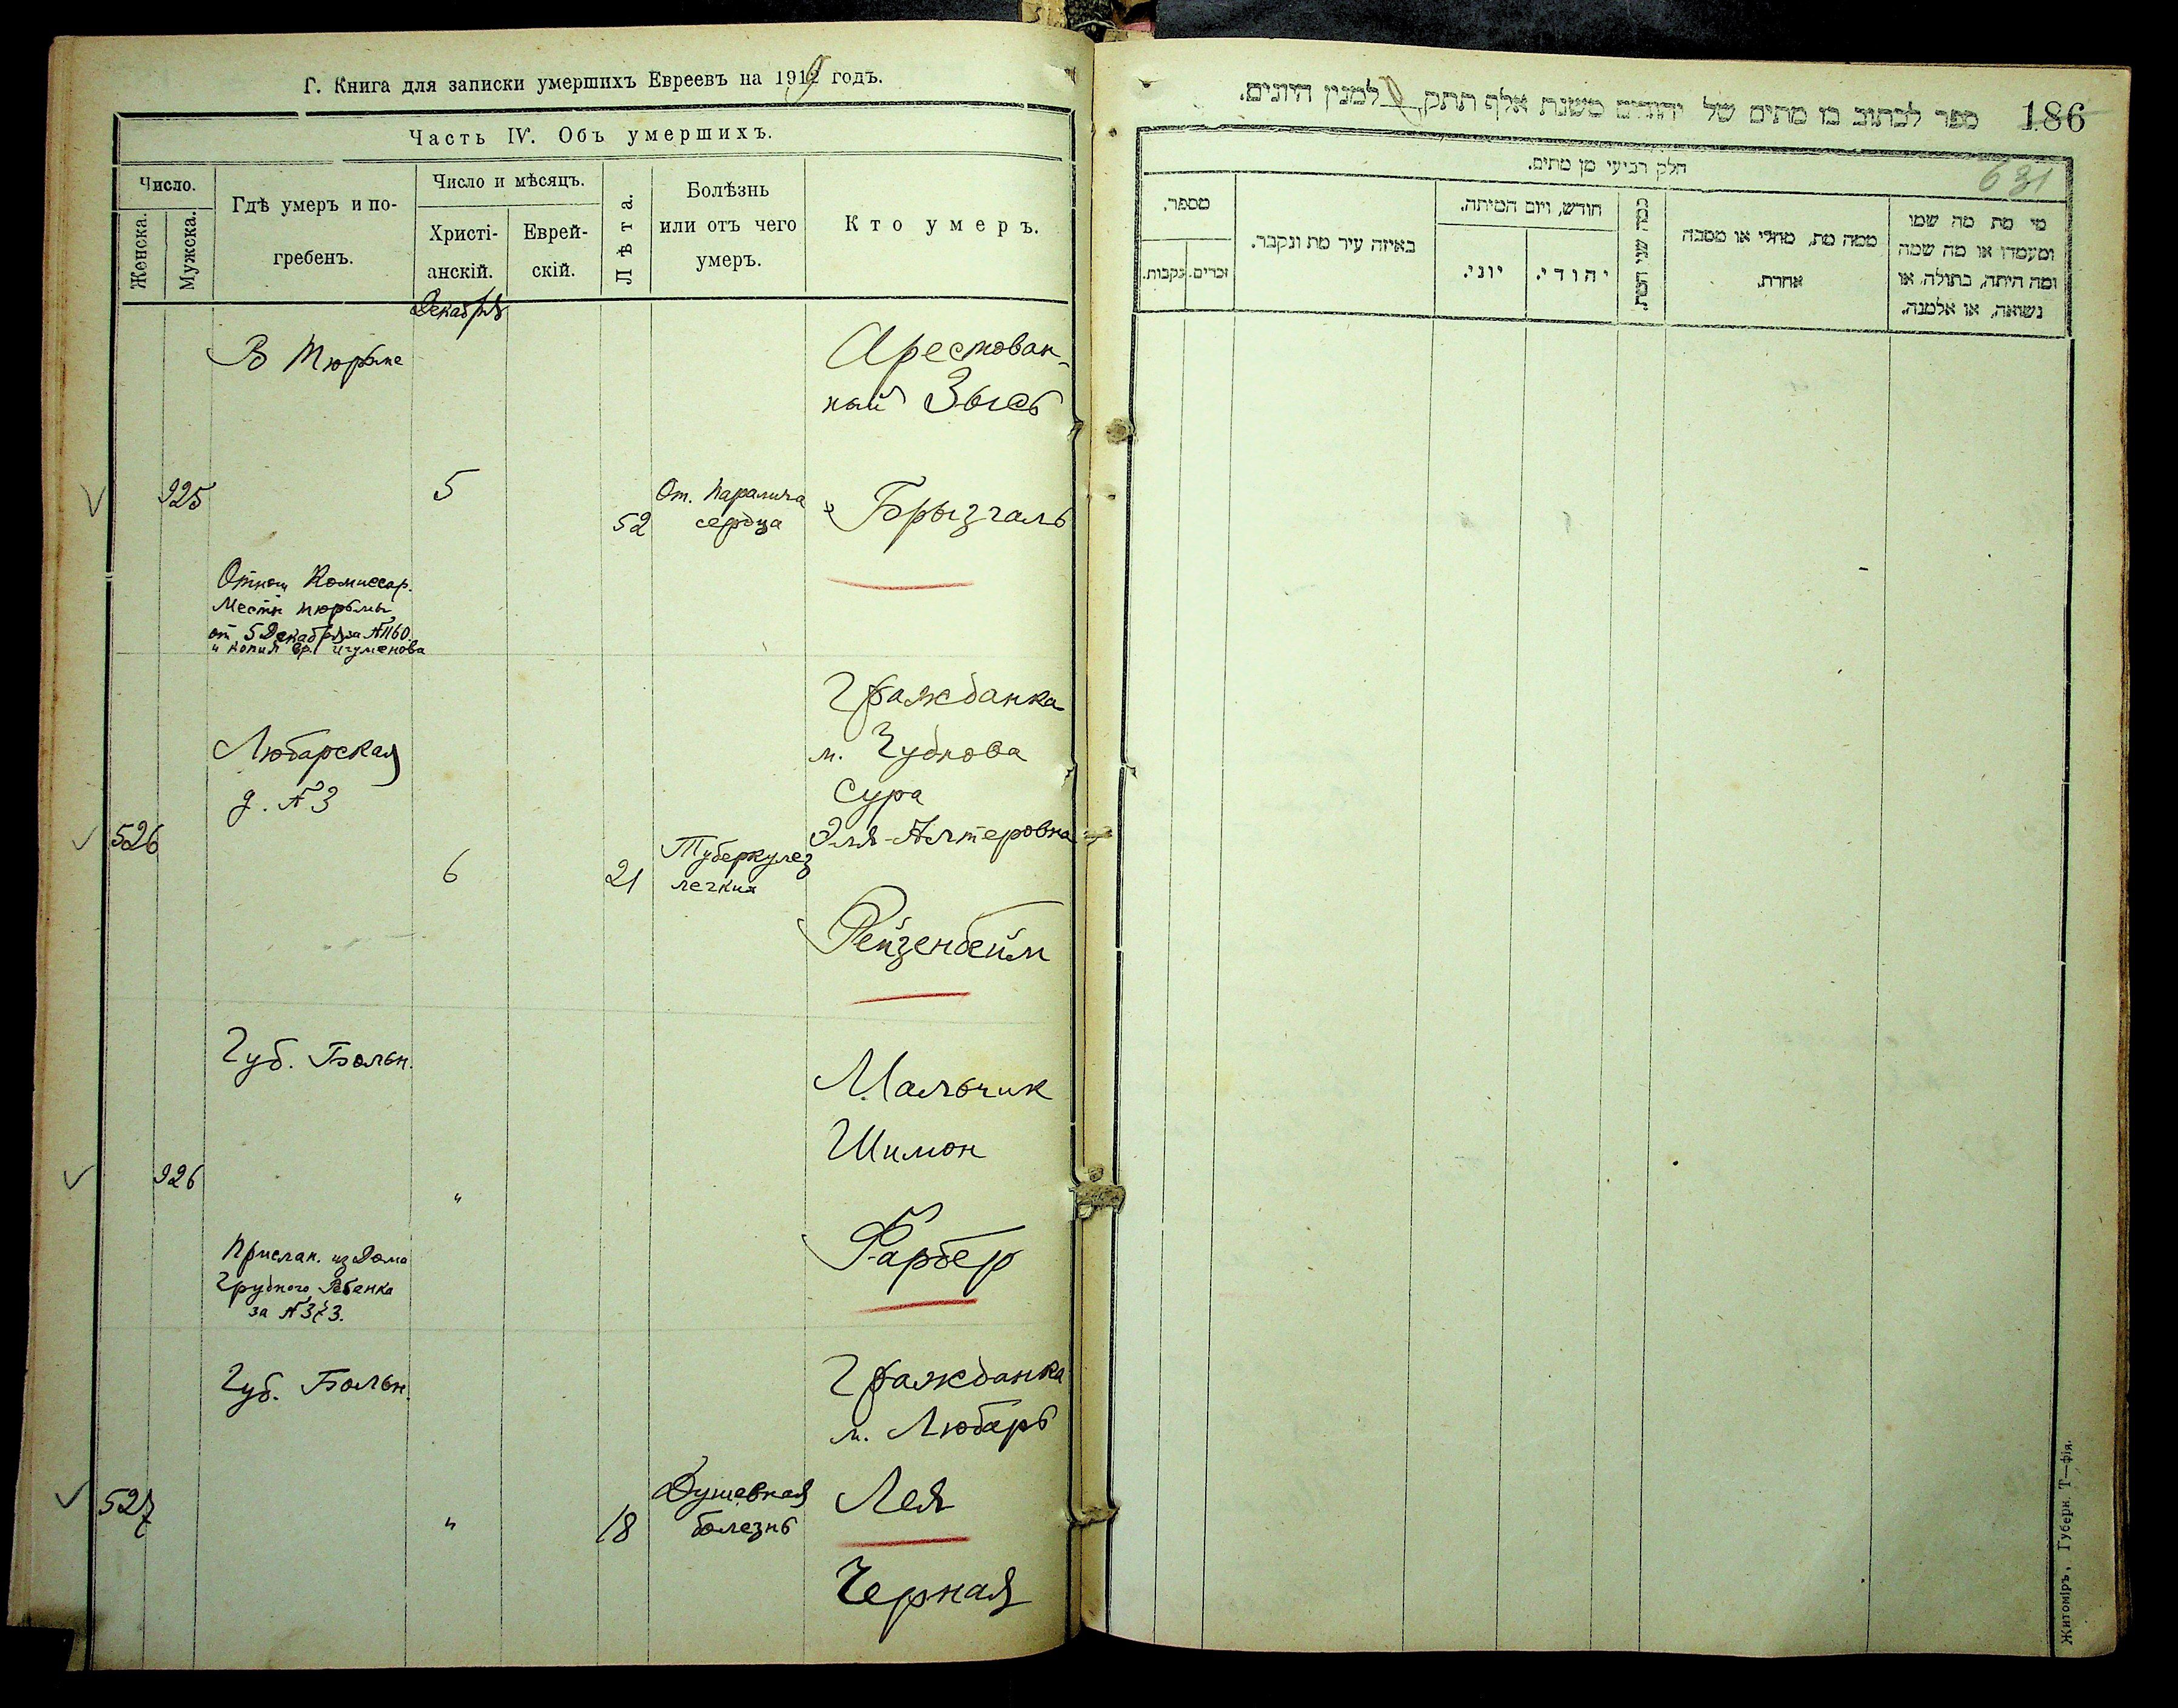 Г. Книга для записки умершихъ Евреевъ на 1919 годъ.
Часть IV. Объ умершихъ.
Число.
Женска.
Мужска.
Гдѣ умеръ и по-
гребенъ.
Число и мѣсяцъ.
Христі-
анскій.
Еврей-
скій.
Лѣта.
Болѣзнь
или отъ чего
умеръ.
Кто умеръ.
Декабря
В Тюрьме
Арестован-
ный Зысь
925
5
52
От. паралича
сердца
Брызгаль
Отнош Комиссар.
Местн тюрьмы
от 5 Декабря за №1160.
и копия вр. Игуменова
Гражданка
м. Чуднова
Любарская
д. №3
Сура
Эля-Алтеровна
526
6
21
Туберкулез
легких
Рейзенбейм
Губ. Больн.
Мальчик
Шимон
926
"
Фарбер
Прислан. из Дома
Грудного Ребенка
за №373.
Губ. Больн.
Гражданка
м. Любарь
527
"
18
Душевная
болезнь
Лея
Черная
186
ספר לכתוב בו מתים של יהודים משנת אלף תתק למנין היונים.
631
חלק רביעי מן מתים.
מספר.
זכרים.
נקבות.
באיזה עיר מת ונקבר.
חודש, ויום המיתה.
יוני.
יהודי.
כמה שני המת.
ממה מת, מחלי או מסבה
אחרת.
מי מת מה שמו
ומעמדו או מה שמה
ומה היתה, בתולה, או
נשואה, או אלמנה.
Житоміръ, Губерн. Т—фія.